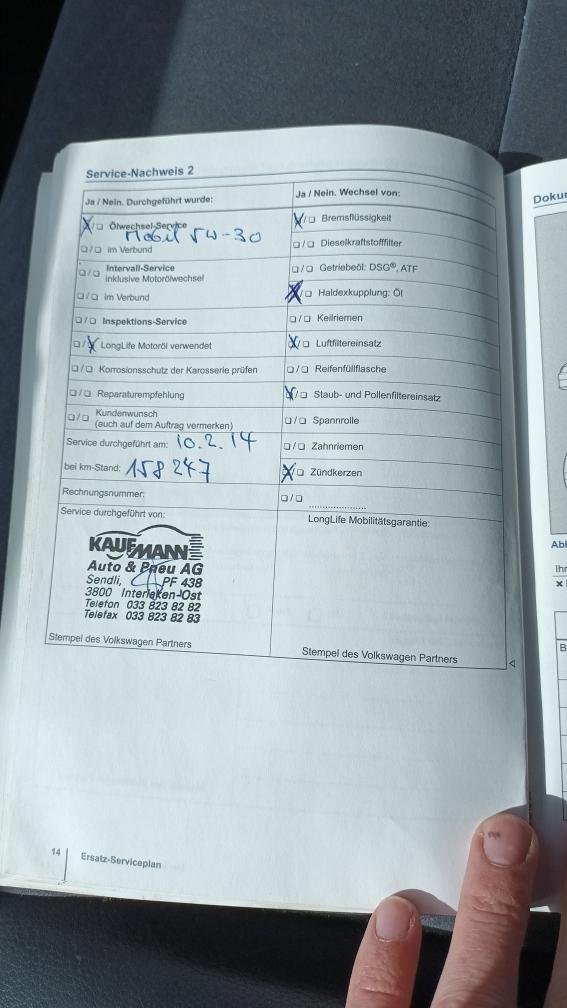 Service-Nachweis 2
Ja / Nein. Durchgeführt wurde:
Ölwechsel-Service
Mobil 5W-30
im Verbund
Intervall-Service
inklusive Motorölwechsel
im Verbund
Inspektions-Service
LongLife Motoröl verwendet
Korrosionsschutz der Karosserie prüfen
Reparaturempfehlung
Kundenwunsch
(auch auf dem Auftrag vermerken)
Service durchgeführt am: 10.2.14
bei km-Stand: 158247
Rechnungsnummer:
Service durchgeführt von:
KAUFMANN
Auto & Pneu AG
Sendli, PF 438
3800 Interlaken-Ost
Telefon 033 823 82 82
Telefax 033 823 82 83
Stempel des Volkswagen Partners
Ja / Nein. Wechsel von:
Bremsflüssigkeit
Dieselkraftstofffilter
Getriebeöl: DSG®, ATF
Haldexkupplung: Öl
Keilriemen
Luftfiltereinsatz
Reifenfüllflasche
Staub- und Pollenfiltereinsatz
Spannrolle
Zahnriemen
Zündkerzen
LongLife Mobilitätsgarantie:
Stempel des Volkswagen Partners
14
Ersatz-Serviceplan